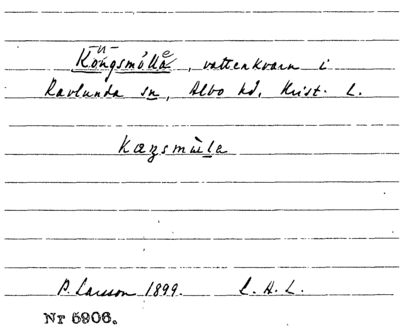 Kŏngsmŏlla, vattenkvarn i
Ravlunda sn, Albo hd, Krist. L.
Kæŋsmùla
P. Larsson 1899. C. A. L.
Nr 5906.